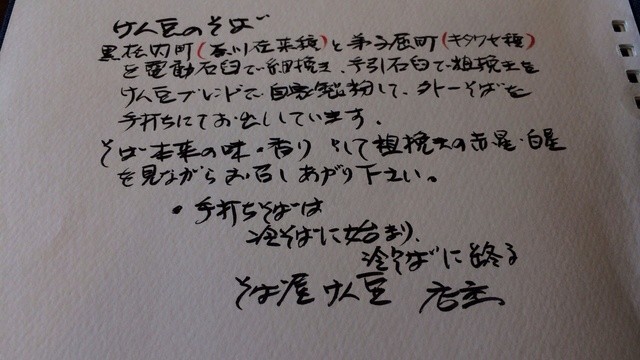 けん豆のそば
黒松内町(奈川在来種)と弟子屈町(キタワセ種)
を電動石臼で細挽き、手引石臼で粗挽きを
けん豆ブレンドで自家製粉して、外一そばを
手打ちにてお出ししています。
そば本来の味・香りそして粗挽きの赤星・白星
を見ながらお召しあがり下さい。
・手打ちそばは
冷そばに始まり、
冷そばに終る
そば屋 けん豆 店主